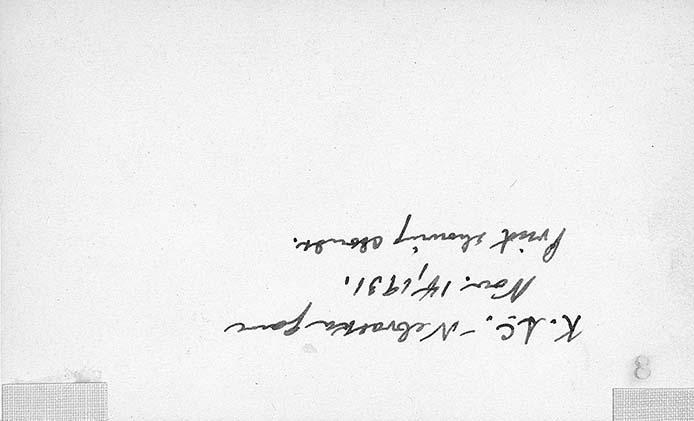 K.S.C.-Nebraska game
Nov. 14, 1931.
Print showing clouds.
8